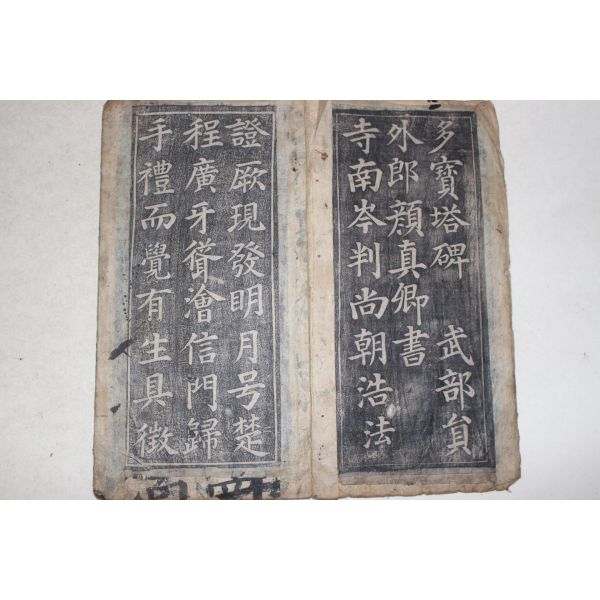 多寶塔碑 武部貟
外郎顔真卿書
寺南岑判尚朝浩法
證厥現發明月号楚
程廣牙聳滄信門歸
手禮而覺有生具徵